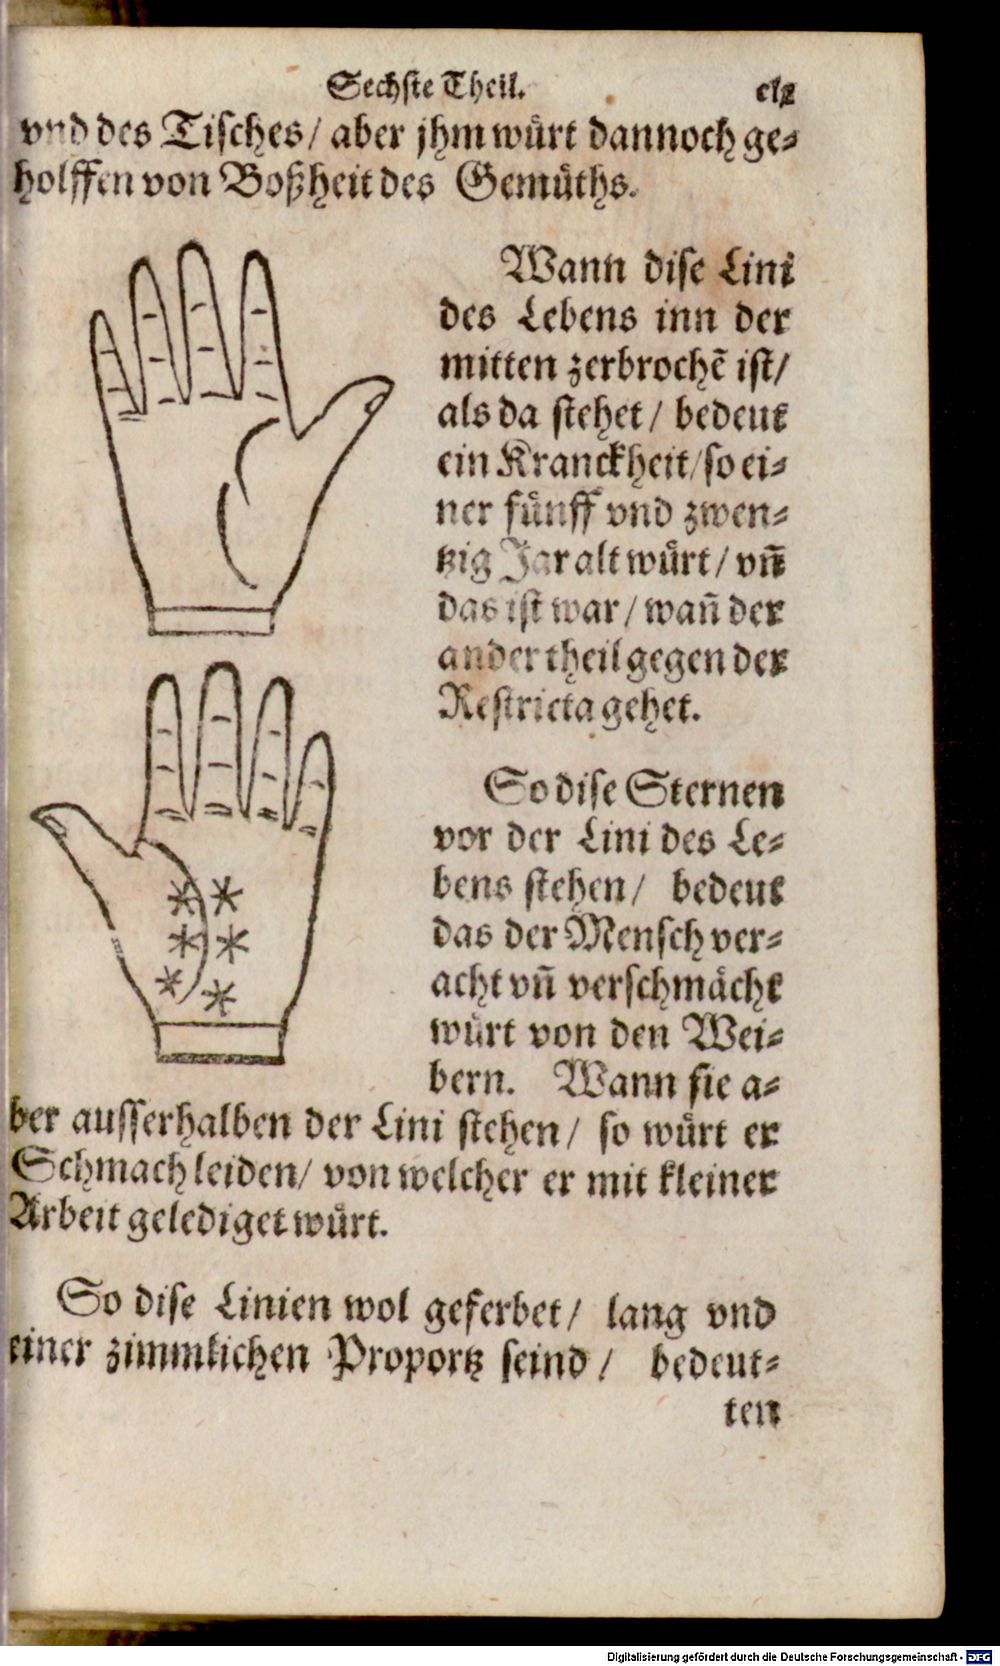 Sechste Theil.
vnd des Tisches/ aber jhm wuͤrt dannoch ge⸗
holffen von Boßheit des Gemuͤths.
Wann dise Lini
des Lebens inn der
mitten zerbrochẽ ist/
als da stehet/ bedeut
ein Kranckheit/ so ei⸗
ner fuͤnff vnd zwen⸗
tzig Jar alt wuͤrt/ vñ
das ist war/ wañ der
ander theil gegen der
Restricta gehet.
So dise Sternen
vor der Lini des Le⸗
bens stehen/ bedeut
das der Mensch ver⸗
acht vñ verschmaͤcht
wuͤrt von den Wei⸗
bern. Wann sie a⸗
ber ausserhalben der Lini stehen/ so wuͤrt er
Schmach leiden/ von welcher er mit kleiner
Arbeit gelediget wuͤrt.
So dise Linien wol geferbet/ lang vnd
einer zimmlichen Proportz seind/ bedeut⸗
ten
Digitalisierung gefördert durch die Deutsche Forschungsgemeinschaft - DFG